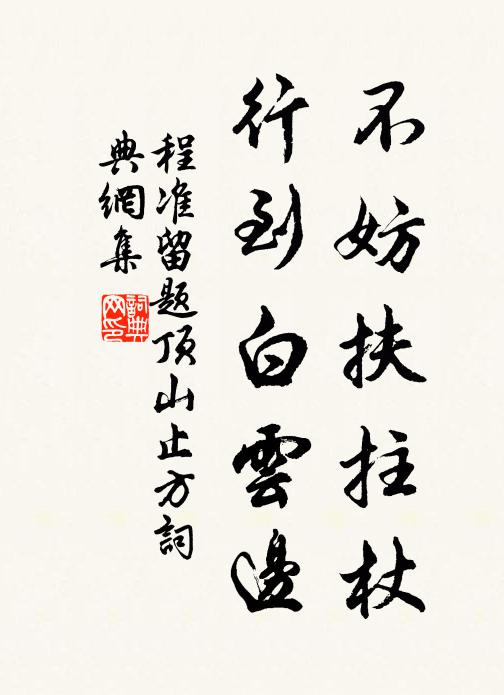 不妨扶拄杖
行到白雲邊
程准留题頂山止方詞
典網集
詞典网印